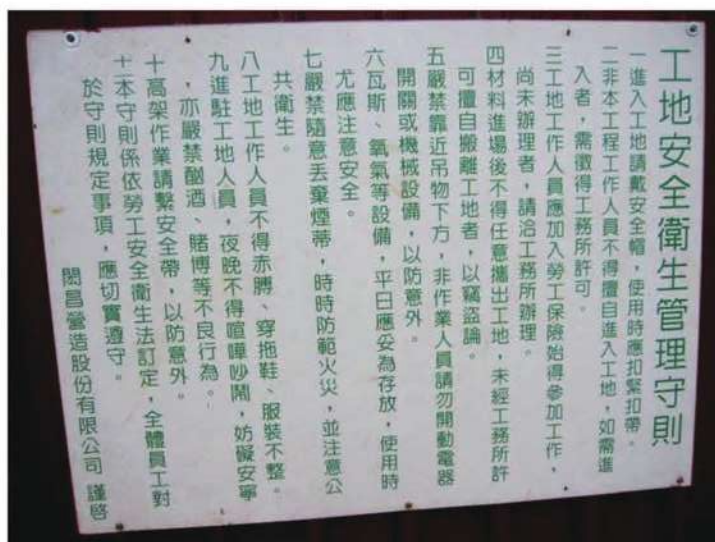 工地安全衛生管理守則
一進入工地請戴安全帽，使用時應扣緊扣帶。
二非本工程工作人員不得擅自進入工地，如需進
入者，需徵得工務所許可。
三工地工作人員應加入勞工保險始得參加工作，
尚未辦理者，請洽工務所辦理。
四材料進場後不得任意攜出工地，未經工務所許
可擅自搬離工地者，以竊盜論。
五嚴禁靠近吊物下方，非作業人員請勿開動電器
開關或機械設備，以防意外。
六瓦斯、氧氣等設備，平日應妥為存放，使用時
尤應注意安全。
七嚴禁隨意丟棄煙蒂，時時防範火災，並注意公
共衛生。
八工地工作人員不得赤膊、穿拖鞋、服裝不整。
九進駐工地人員，夜晚不得喧嘩吵鬧，妨礙安寧
，亦嚴禁酗酒、賭博等不良行為。
十高架作業請繫安全帶，以防意外。
十一本守則係依勞工安全衛生法訂定，全體員工對
於守則規定事項，應切實遵守。
閎昌營造股份有限公司 謹啓